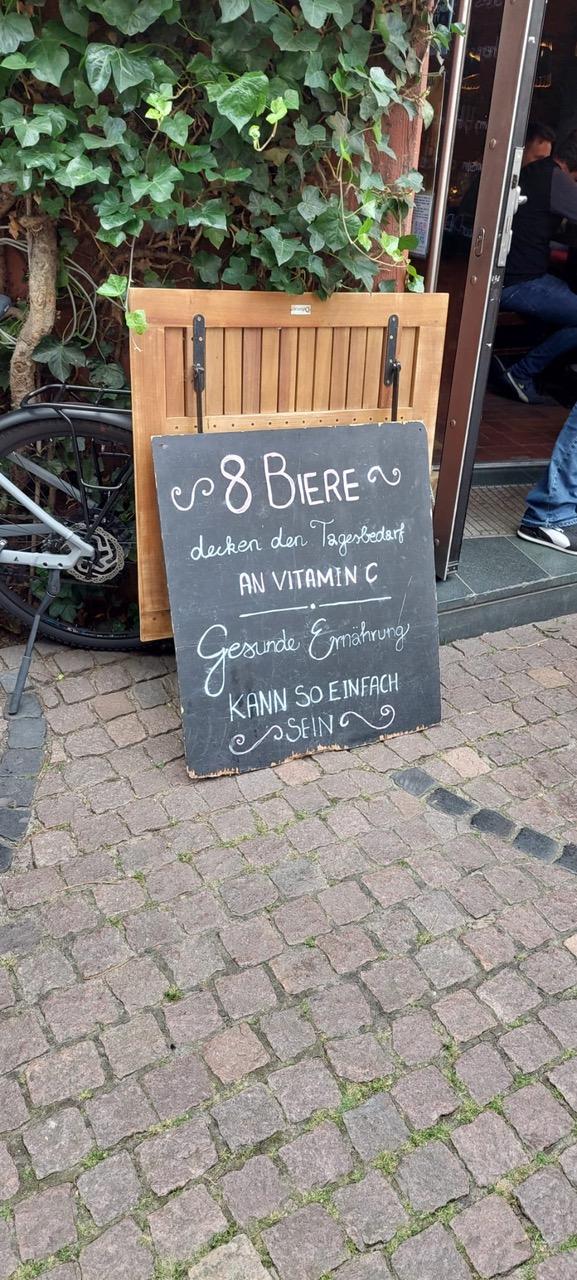 8 BIERE
decken den Tagesbedarf
AN VITAMIN C
Gesunde Ernährung
KANN SO EINFACH
SEIN